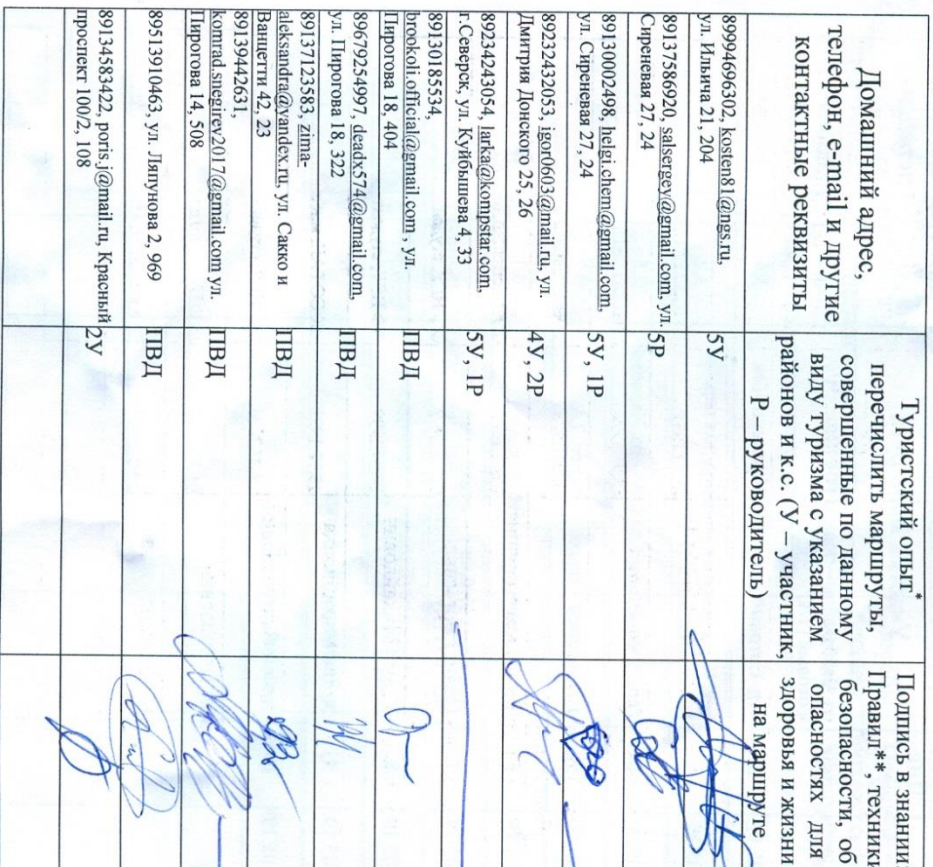 Домашний адрес,
телефон, e-mail и другие
контактные реквизиты
Туристский опыт*
перечислить маршруты,
совершенные по данному
виду туризма с указанием
районов и к.с. (У – участник,
Р – руководитель)
Подпись в знании
Правил**, техники
безопасности, об
опасностях для
здоровья и жизни
на маршруте
89994696302, kosten81@ngs.ru,
ул. Ильича 21, 204
5У
89137586920, salsergey@gmail.com, ул.
Сиреневая 27, 24
5Р
89130002498, helgi.chem@gmail.com,
ул. Сиреневая 27, 24
5У, 1Р
89232432053, igor0603@mail.ru, ул.
Дмитрия Донского 25, 26
4У, 2Р
89234243054, larka@kompstar.com,
г.Северск, ул. Куйбышева 4, 33
5У, 1Р
89130185534,
brookoli.official@gmail.com , ул.
Пирогова 18, 404
ПВД
89679254997, deadx574@gmail.com,
ул. Пирогова 18, 322
ПВД
89137123583, zima-
aleksandra@yandex.ru, ул. Сакко и
Ванцетти 42, 23
ПВД
89139442631,
komrad.snegirev2017@gmail.com ул.
Пирогова 14, 508
ПВД
89513910463, ул. Ляпунова 2, 969
ПВД
89134583422, poris.j@mail.ru, Красный
проспект 100/2, 108
2У